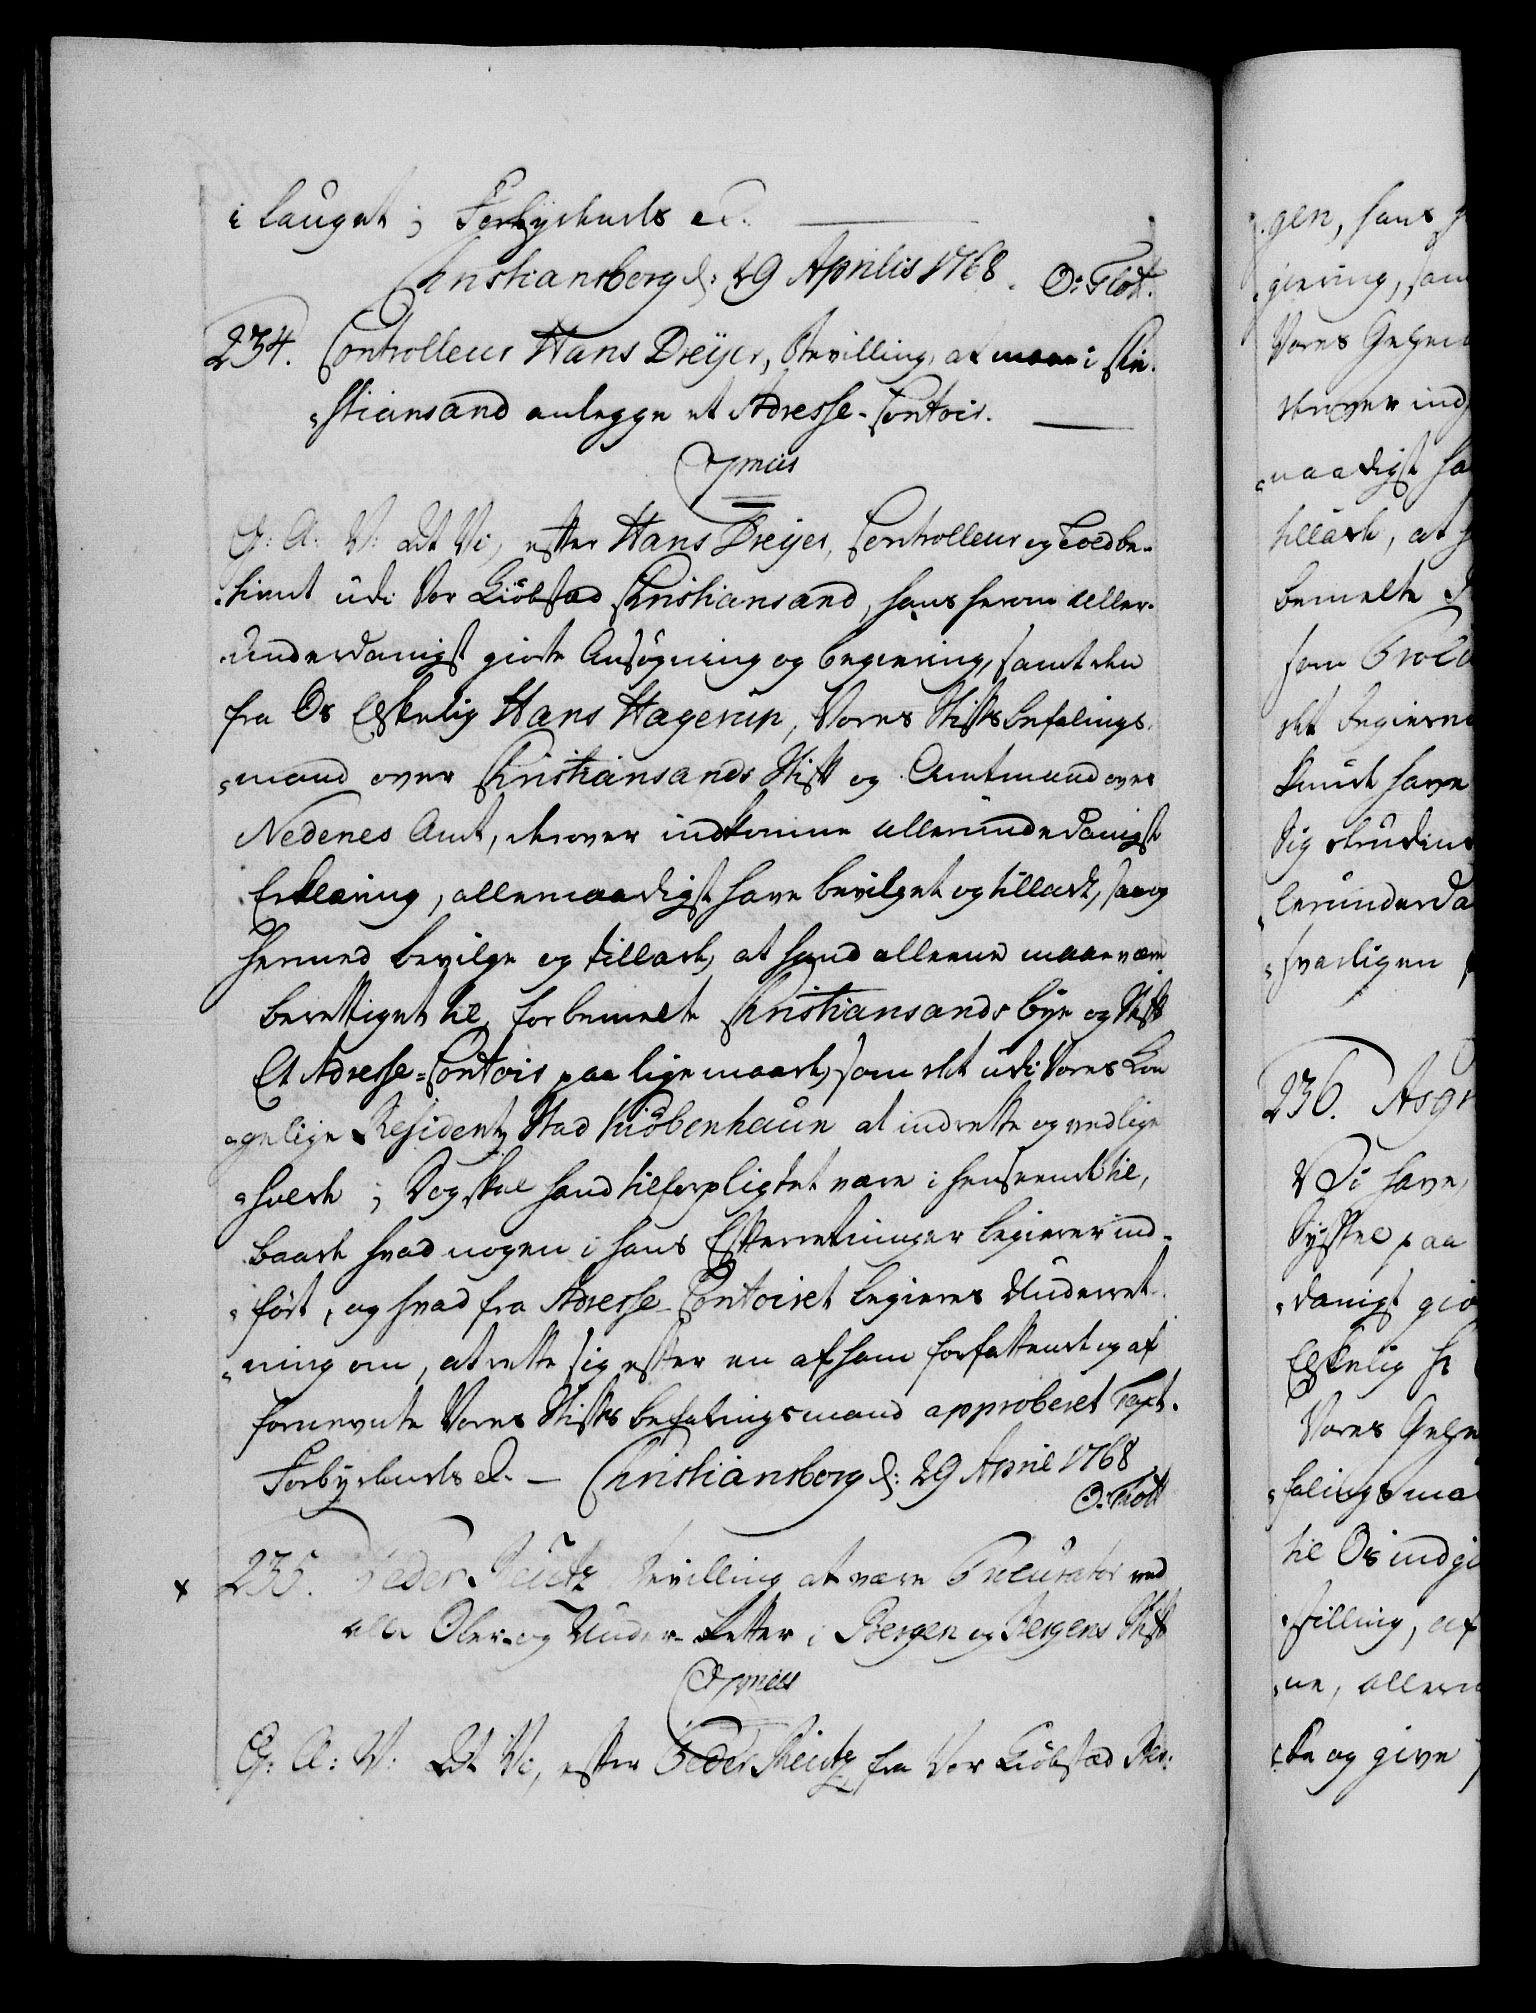 i lauget; Forbydendes etc.
Christiansborg d: 29 Aprilis 1768. O: Thott.
234. Controlleur Hans Dreyer, Bevilling, at maae i Chri-
stiansand anlegge et Adresse-Contoir.
C7mus
G: A: V: At Vi, efter Hans Dreyer, Controlleur og Toldbe-
tient udi Vor Kiöbstad Christiansand, hans herom aller-
underdanigst giorte Ansögning og begiering, samt den
fra Os Elskelig Hans Hagerup, Vores Stiftsbefalings-
mand over Christiansands Stift og Amtmand over
Nedenes Amt, derover indkomne allerunderdanigste
Erklæring, allernaadigst have bevilget og tilladt, saa og
hermed bevilge og tillade, at hand alleene maae være
berettiget til, for bemelte Christiansands bye og Stift
Et Adresse-Contoir paa lige maade, som det udi Vores Kon-
gelige Residentz Stad Kiöbenhaun at indrette og vedlige
holde; Dog skal hand tilforpligtet være i henseende til,
baade hvad nogen i hans Efterretninger begierer ind-
fört, og hvad fra Adresse-Contoiret begieres Underret-
ning om, at rette sig efter en af ham forfattende og af
fornevnte Vores Stiftsbefalingsmand approberet Taxt.
Forbydendes etc. - Christiansborg d: 29 April 1768
O: Thott
x 235. Peder Reutz Bevilling at være Procurator ved
alle Over- og Under-Retter i Bergen og Bergens Stift
C7mus
G: A: V: At Vi, efter Peder Reutz, fra Vor Kiöbstad Ber-
gen, hans
giering, sam
Vores Geheim
skriver ind
naadigst ha
tillade, at
bemelte
som Proc
det begieren
kunde have
sig
lerunderda
svarligen
236. Asg
Vi have,
Syssel paa
danigst gio
Elskelig H
Vores Gehe
falingsma
til Os indgi
stilling, af
ne, allern
te og give